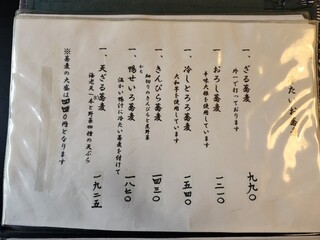 つめたいお蕎麦
一、ざる蕎麦 九九〇
外一で打っております
一、おろし蕎麦 一二一〇
辛味大根を使用しています
一、冷しとろろ蕎麦 一五四〇
大和芋を使用しています
一、きんぴら蕎麦 一四三〇
細切りのきんぴらと炙野菜
一、鴨せいろ蕎麦 一八七〇
温かい鴨汁に冷たい蕎麦を付けて
一、天ざる蕎麦 一九二五
海老天一本と野菜四種の天ぷら
※蕎麦の大盛は四四〇円となります